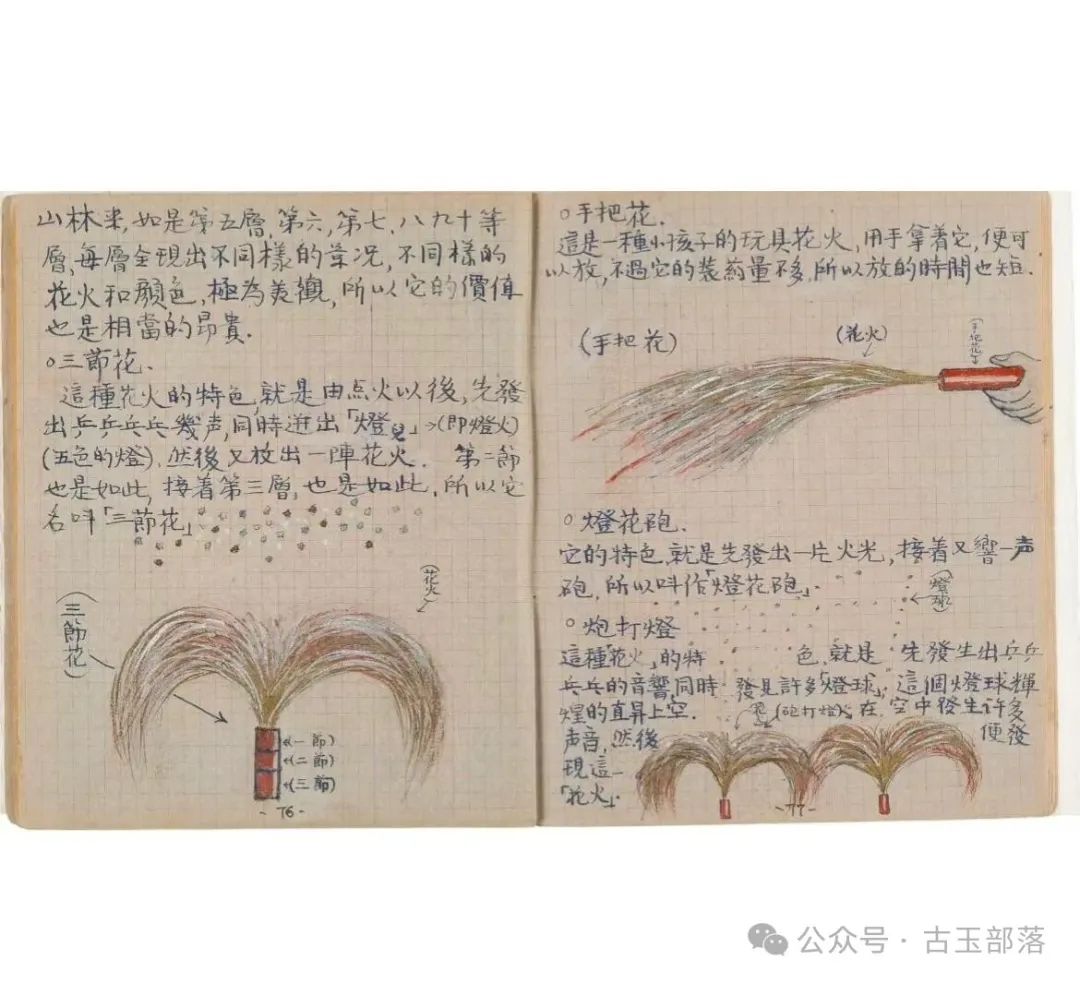 山林来,如是第五層,第六,第七,八九十等
層,每層全現出不同樣的景况,不同樣的
花火和顏色,極為美觀,所以它的價值
也是相當的昂貴.
○三節花.
這種花火的特色,就是由点火以後,先發
出乒乒乓乓幾声,同時迸出「燈兒」→(即燈火)
(五色的燈),然後又放出一陣花火. 第二節
也是如此,接着第三層,也是如此.所以它
名叫「三節花」
(花火)
(三節花)
(一節)
(二節)
(三節)
-76-
○手把花.
這是一種小孩子的玩具花火,用手拿着它,便可
以放,不過它的装葯量不多,所以放的時間也短.
(手把花)
(花火)
(手把花子)
○燈花砲.
它的特色,就是先發出一片火光,接着又響一声
砲,所以叫作「燈花砲」.
(燈球)
○炮打燈
這種「花火」的特 色,就是 先發生出乒乒
乓乓的音響,同時 發見許多「燈球」,這個燈球輝
煌的直昇上空. (砲打燈) 在空中發生许多
声音,然後 便發
現這-
「花火」.
-77-
公众号·古玉部落